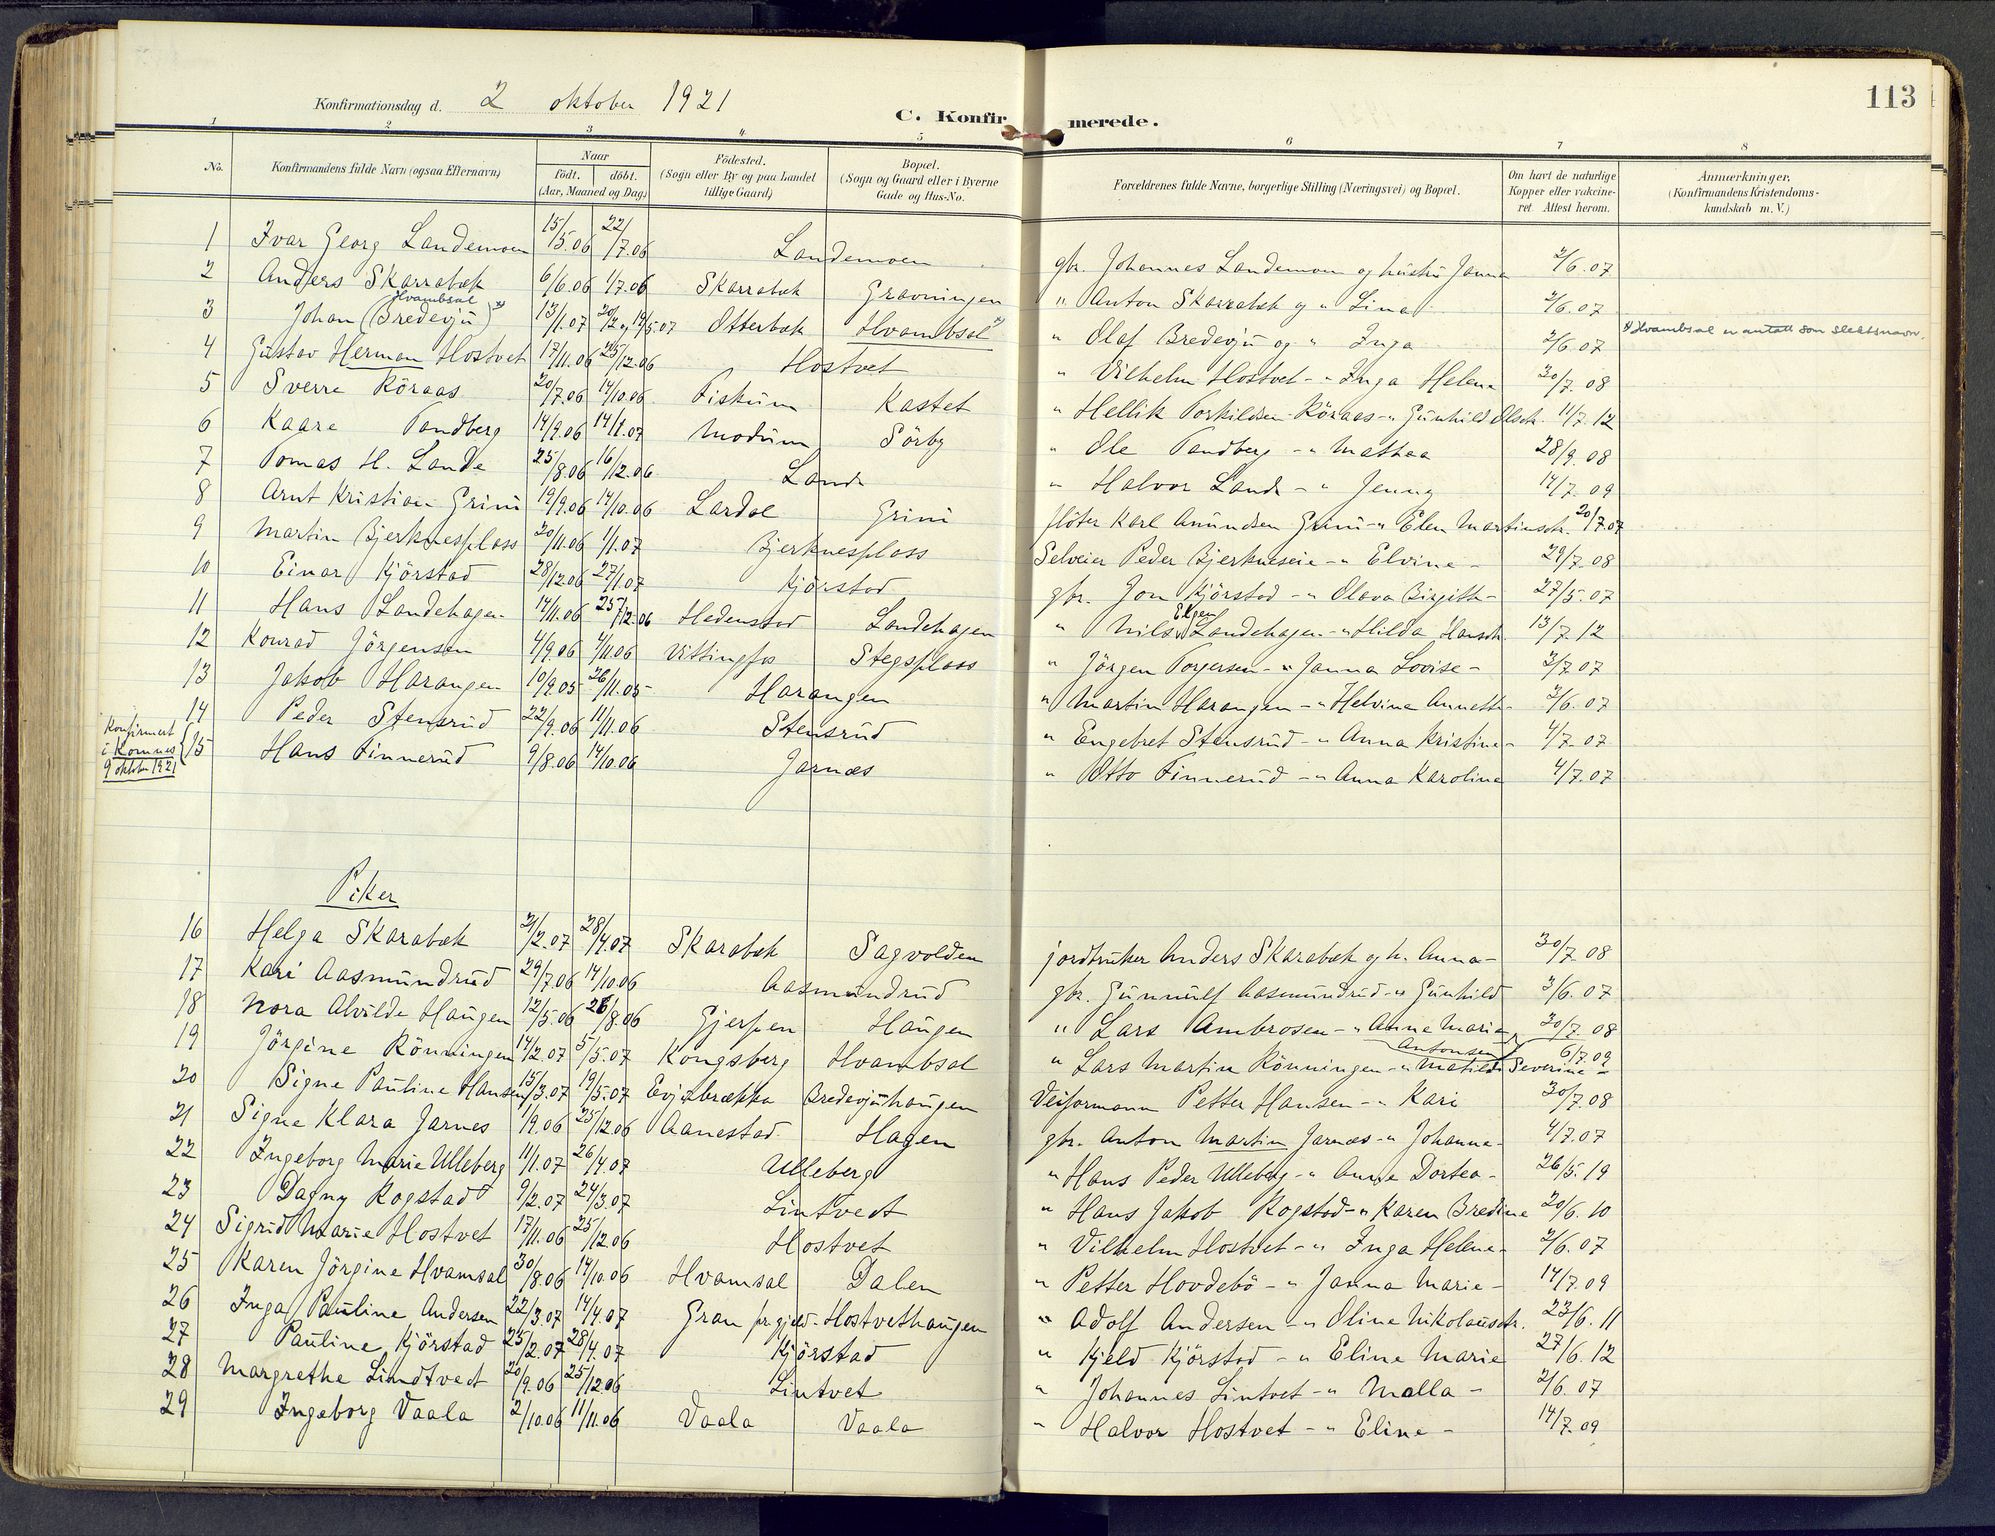 113
Konfirmationsdag d. 2 oktober 1921
C. Konfirmerede.
1 2 3 4 5 6 7 8
No. Konfirmandens fulde Navn (ogsaa Efternavn) Naar født. døbt. (Aar, Maaned og Dag) Fødested. (Sogn eller By og paa Landet tillige Gaard) Bopæl. (Sogn og Gaard eller i Byerne Gade og Hus-No. Forældrenes fulde Navne, borgerlige Stilling (Næringsvei) og Bopæl. Om havt de naturlige Kopper eller vakcineret. Attest herom. Anmærkninger. (Konfirmandens Kristendomskundskab m. V.)
1 Ivar Georg Landemoen 15/5.06 22/7.06 Landemoen gbr. Johannes Landemoen og hustru Janna 2/6.07
2 Anders Skarrabæk 6/6.06 1/7.06 Skarrabæk Gravningen " Anton Skarrabæk og " Lina 2/6.07
3 Johan (Bredevju) Hvambsal x) 13/1.07 20/2 19/5.07 Otterbæk Hvambsal x) " Olaf Bredevju og " Inga 2/6.07 x) Hvambsal er antatt som slektsnavn.
4 Gustav Herman Hostvet 17/11.06 25/12.06 Hostvet " Vilhelm Hostvet - " Inga Helene 30/7.08
5 Sverre Köraas 20/7.06 14/10.06 Fiskum Kastet " Hellik Torkildsen Köraas - " Gunhild Olsdr. 11/7.12
6 Kaare Tandberg 14/9.06 14/1.07 Modum Sörby " Ole Tandberg - " Mathea 28/9.08
7 Tomas H. Lande 25/8.06 16/12.06 Lande " Halvor Lande - " Jenny 14/7.09
8 Arnt Kristian Grini 19/9.06 14/10.06 Lardal Grini flöter Karl Amundsen Grini - " Elen Martinsdr. 20/7.07
9 Martin Bjerknesplass 20/11.06 1/1.07 Bjerknesplass Selveier Peder Bjerkneseie - " Elvine - 29/7.08
10 Einar Kjörstad 28/12.06 27/1.07 Kjörstad gbr. Jon Kjörstad - " Olava Birgitte - 27/5.07
11 Hans Landehagen 14/11.06 25/12.06 Hedenstad Landehagen " Nils Elgen Landehagen - " Hilda Hansdr. 13/7.12
12 Konrad Jörgensen 4/9.06 4/11.06 Vittingfos Stegsplass " Jörgen Torjersen - " Janna Lovise - 2/7.07
13 Jakob Harangen 10/9.05 26/11.05 Harangen " Martin Harangen - " Helvine Annette 2/6.07
14 Peder Stensrud 22/9.06 11/11.06 Stensrud " Engebret Stensrud - " Anna Kristine - 4/7.07
Konfirmert i Komnes 9 oktober 1921 { 15 Hans Finnerud 9/8.06 14/10.06 Jarnæs " Otto Finnerud - " Anna Karoline 4/7.07
Piker
16 Helga Skarabæk 21/2.07 28/4.07 Skarabæk Sagvolden jordbruker Anders Skarabæk og h. Anna - 30/7.08
17 Kari Aasmundrud 29/7.06 14/10.06 Aasmundrud gbr. Gunnulf Aasmundrud - " Gunhild 3/6.07
18 Nora Alvilde Haugen 12/5.06 26/8.06 Gjerpen Haugen " Lars Ambrosen - " Anne Marie 30/7.08
19 Jörgine Rönningen 14/2.07 5/5.07 Kongsberg Hvambsal " Lars Martin Rönningen - " Matilde Antonsen Severine - 6/7.09
20 Signe Pauline Hansen 15/3.07 19/5.07 Evjubrækka Bredevjuhaugen Veiformann Petter Hansen - " Kari 30/7.08
21 Signe Klara Jarnes 1/9.06 25/12.06 Aanestad Hagen gbr. Anton Martin Jarnæs - " Johanne - 4/7.07
22 Ingeborg Marie Ulleberg 11/1.07 26/4.07 Ulleberg " Hans Peder Ulleberg - " Anne Dortea - 26/5.19
23 Dagny Rogstad 9/2.07 24/3.07 Lintvedt " Hans Jakob Rogstad - " Karen Bredine 20/6.10
24 Sigrid Marie Hostvet 17/11.06 25/12.06 Hostvet " Vilhelm Hostvet - " Inga Helene - 2/6.07
25 Karen Jörgine Hvamsal 30/8.06 14/10.06 Hvamsal Dalen " Petter Hovdebö - " Janna Marie - 14/7.09
26 Inga Pauline Andersen 22/3.07 14/4.07 Gran pr.gjeld - Hostvethaugen " Adolf Andersen - " Oline Nikolausdr. 23/6.11
27 Pauline Kjörstad 25/2.07 28/4.07 Kjörstad " Kjeld Kjörstad - " Eline Marie 27/6.12
28 Margrethe Lindtvedt 20/9.06 25/12.06 Lintvet " Johannes Lintvet - " Malla - 2/6.07
29 Ingeborg Vaala 2/10.06 11/11.06 Vaala Vaala " Halvor Hostvet - " Eline - 14/7.09